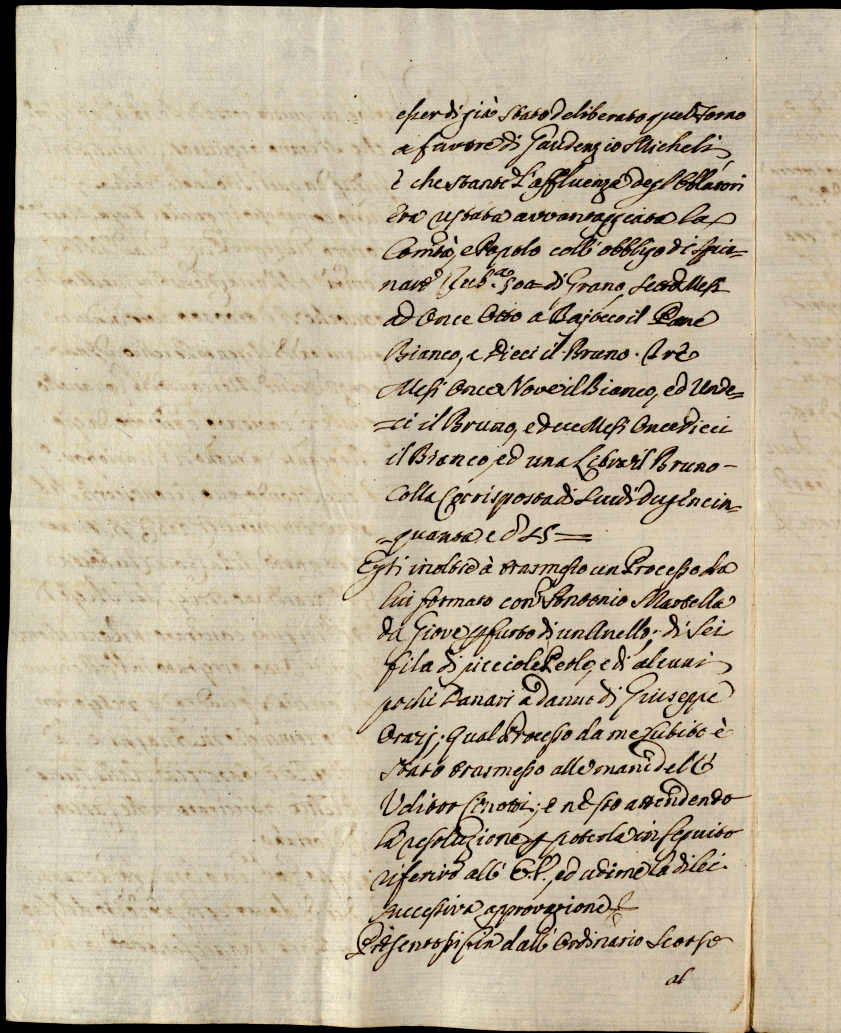 esser di già stato deliberato quel Forno
a favore di Gaudenzio Micheli,
e che stante l'affluenza degl'Oblatori
era restata avvantaggiata la
Comtà, e Popolo coll'obbligo di spia-
nare Rub. 500 di Grano, Sei Mesi
ad Once Otto a Bajocco il Pane
Bianco, e Dieci il Bruno. Trè
Mesi Once Nove il Bianco, ed Unde-
=ci il Bruno, e due Mesi Once Dieci
il Bianco, ed una Libra il Bruno-
colla Corrisposta di Scudi dugencin-
=quanta e 45=
Egli inoltre à trasmesso un Processo da
lui formato con Antonio Martella
da Giove p furto di un Anello, di sei
fila di picciole Perle, e di alcuni
pochi Danari a danno di Giuseppe
Orazj; qual Processo da me esibito è
stato trasmesso alle mani del
Uditor; e ne sto attendendo
la resoluzione p poterla in seguito
riferire all' E.V., ed udirne la di lei
successiva approvazione
Presentossi fin dall'Ordinario Scorso
al